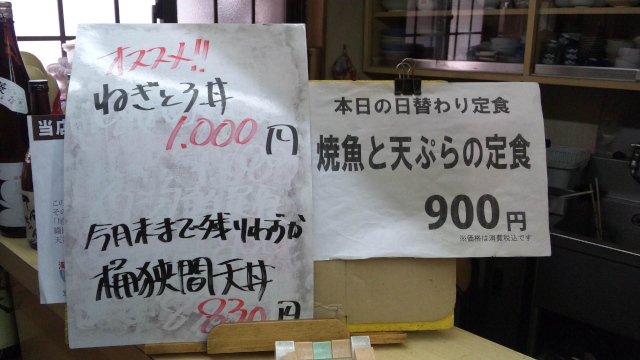 オススメ!!
ねぎとろ丼
1.000円
今月末まで残りわずか
桶狭間天丼
830円
本日の日替わり定食
焼魚と天ぷらの定食
900円
※価格は消費税込です
当店